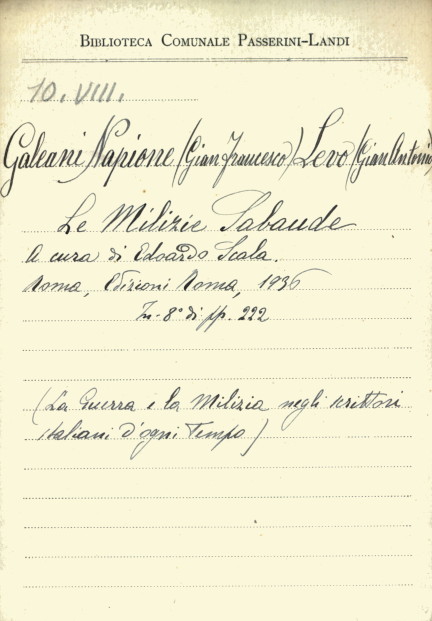 BIBLIOTECA COMUNALE PASSERINI-LANDI
10. VIII.
Galeani Napione (Gian Francesco) Levo (Gian Antonio
Le Milizie Sabaude
A cura di Edoardo Scala.
Roma, Edizioni Roma, 1936
In-8° di pp. 222
(La Guerra e la Milizia negli scrittori
italiani d'ogni Tempo)